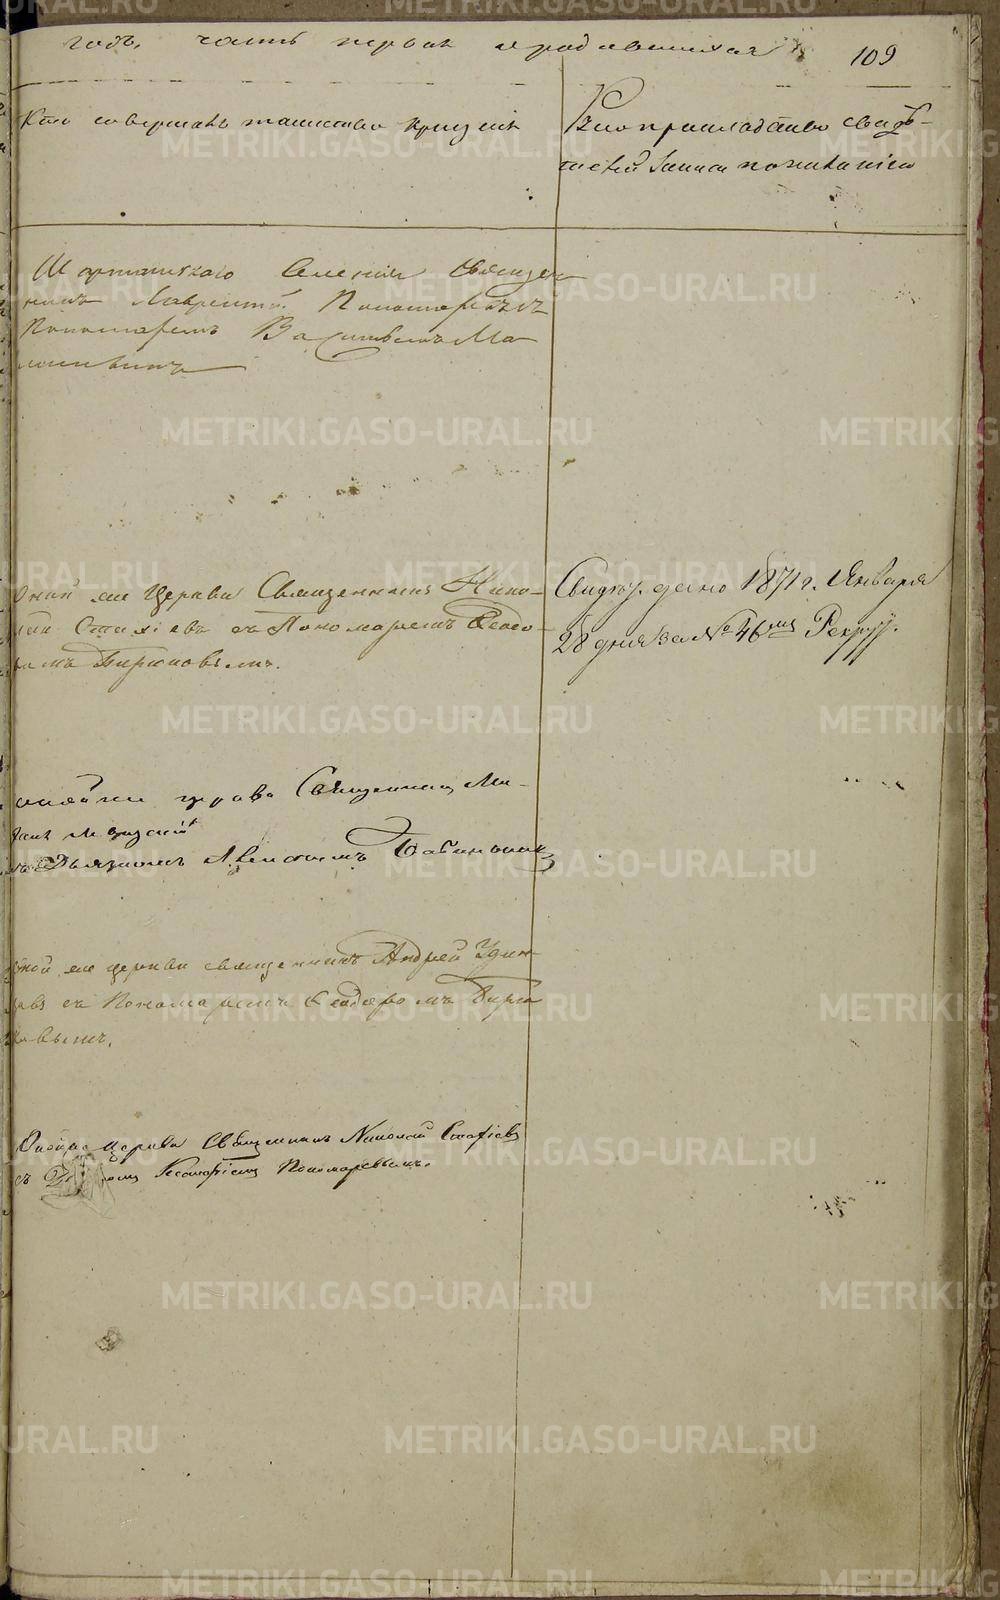 годъ, часть первая о родившихся
109
Кто совершалъ таинство крещенія
Рукоприкладство свидѣ-
телей записи по желанію
Шарташскаго Селенія Священ
никъ Лаврентій Пономаревъ съ
Пономаремъ Васильемъ Ма
Оной же Церкви Священникъ Нико-
лай Стахіевъ съ Пономаремъ Ѳеодо-
ромъ Бирюковымъ.
Свидѣт. дано 1871 г. Января
28 дня за № 46 Рекрут.
церкви Священникъ Ми-
съ Дьячкомъ Алексѣемъ Бабиновым
Оной же церкви священникъ Андрей Удин-
цовъ съ Пономаремъ Ѳеодоромъ Бирю
ковымъ.
Оной же церкви Священникъ Николай Стахіевъ
съ Пономаревымъ.
METRIKI.GASO-URAL.RU